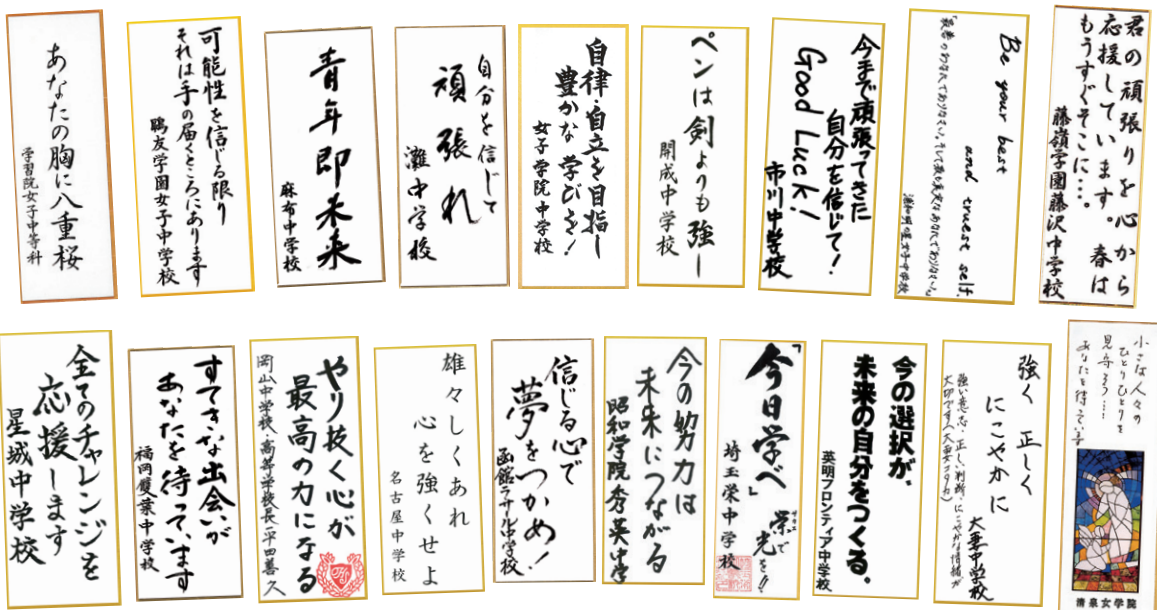 あなたの胸に八重桜
学習院女子中等科
可能性を信じる限り
それは手の届くところにあります
鷗友学園女子中学校
青年即未来
麻布中学校
自分を信じて
頑張れ
灘中学校
自律・自立を目指し
豊かな学びを!
女子学院中学校
ペンは剣よりも強し
開成中学校
今まで頑張ってきた
自分を信じて!
Good Luck!
市川中学校
Be your best
and truest self.
君の頑張りを心から
応援しています。春は
もうすぐそこに・・・。
藤嶺学園藤沢中学校
全てのチャレンジを
応援します
星城中学校
すてきな出会いが
あなたを待っています
福岡雙葉中学校
やり抜く心が
最高の力になる
岡山中学校・高等学校長 平田善久
雄々しくあれ
心を強くせよ
名古屋中学校
信じる心で
夢をつかめ!
函館ラ・サール中学校
今の努力は
未来につながる
昭和学院秀英中学
「今日学べ」
栄で
サカエ
光を!!
埼玉栄中学校
今の選択が、
未来の自分をつくる。
英明フロンティア中学校
強く 正しく
にこやかに
強い意志、正しい判断、にこやかな情緒が
大妻中学校
小さな人々の
ひとりひとりを
見守ろう・・・・
あなたを待っています
清泉女学院